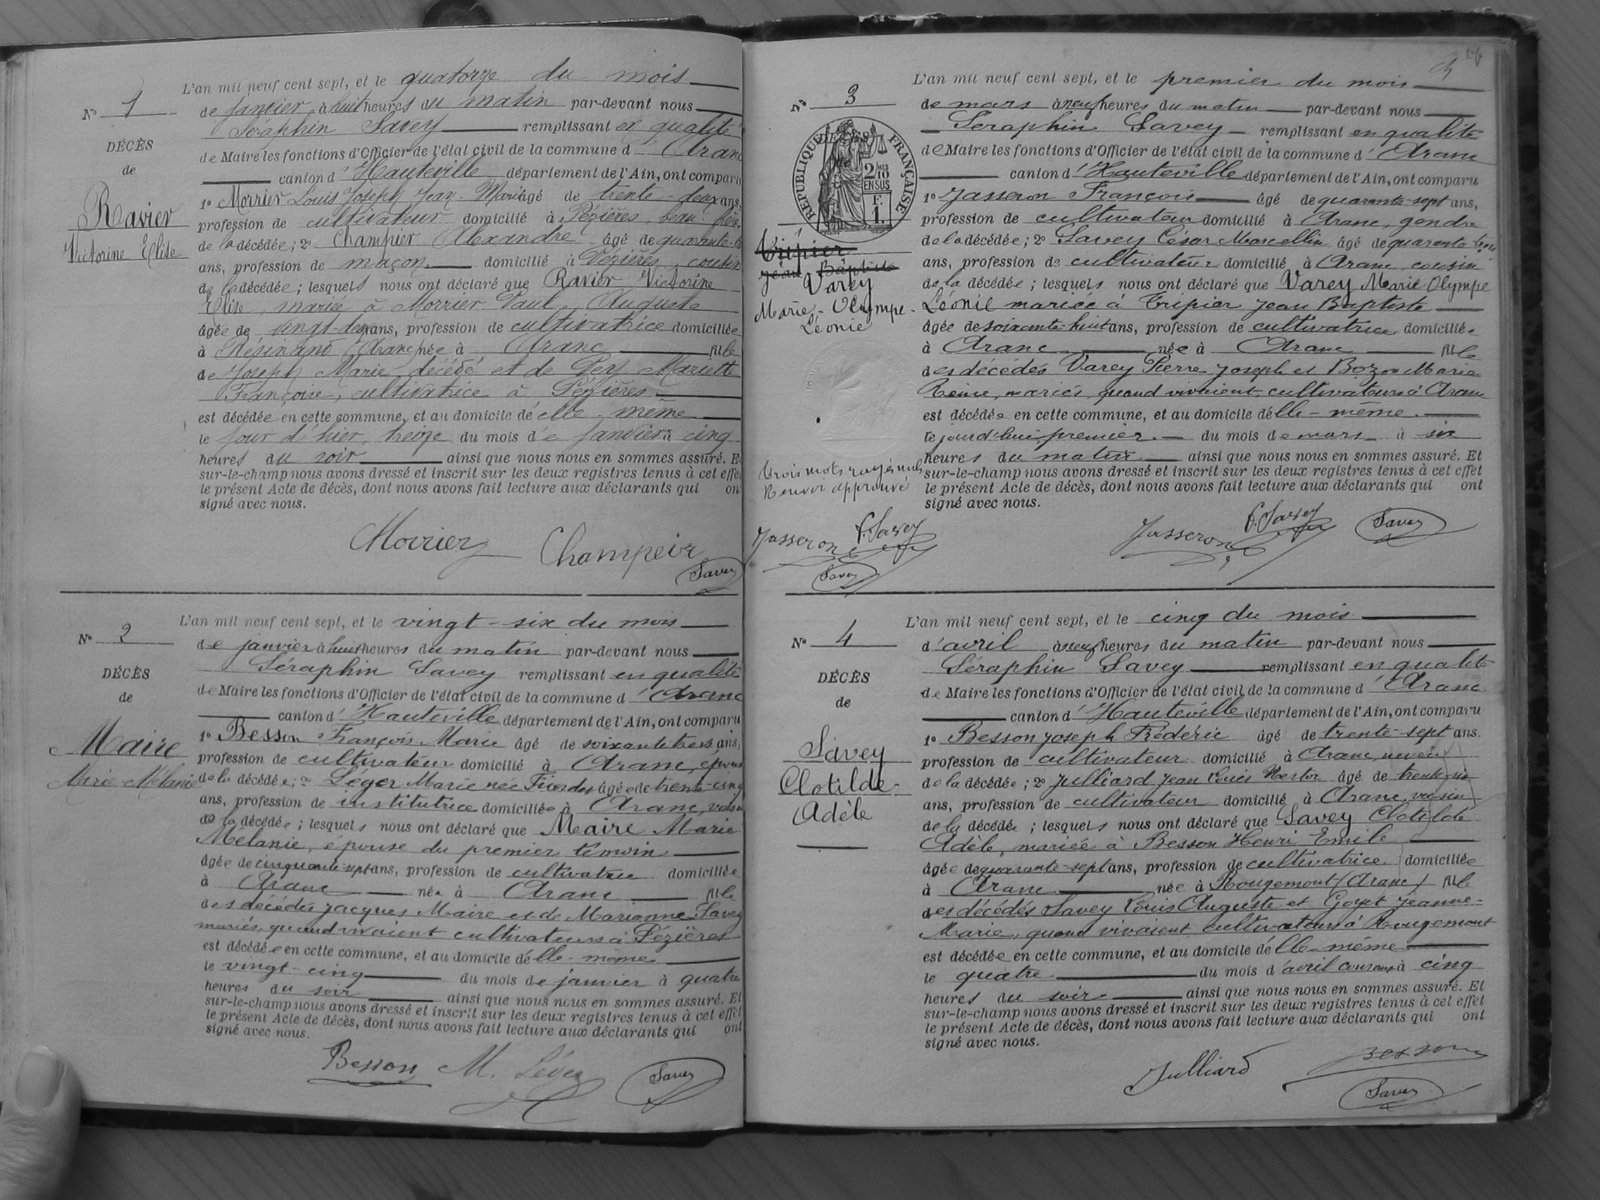 L'an mil neuf cent sept, et le quatorze du mois
N° 1
de janvier, à huit heures du matin par-devant nous
Séraphin Savey remplissant en qualité
DÉCÈS
de Maire les fonctions d'Officier de l'état civil de la commune d'Aranc
de
canton d'Hauteville, département de l'Ain, ont comparu
1° Morrier Louis Joseph Jean Marie âgé de trente-deux ans,
Ravier
profession de cultivateur domicilié à Pézières, beau-frère
Victorine Elise
de la décédée; 2° Champier Alexandre âgé de quarante
ans, profession de maçon domicilié à Pézières, cousin
de la décédée; lesquels nous ont déclaré que Ravier Victorine
Elise, mariée à Morrier Paul Auguste
âgée de vingt-deux ans, profession de cultivatrice domiciliée
à Résinand (Aranc) née à Aranc fille
de Joseph Marie, décédé et de Pery Mariette
Françoise, cultivatrice à Pézières
est décédée en cette commune, et au domicile d'elle-même
le jour d'hier, treize du mois de janvier à cinq
heures du soir ainsi que nous nous en sommes assuré. Et
sur-le-champ nous avons dressé et inscrit sur les deux registres tenus à cet effet
le présent Acte de décès, dont nous avons fait lecture aux déclarants qui ont
signé avec nous.
Morrier Champeir
Savey
L'an mil neuf cent sept, et le vingt-six du mois
N° 2
de janvier à huit heures du matin par-devant nous
Séraphin Savey remplissant en qualité
DÉCÈS
de Maire les fonctions d'Officier de l'état civil de la commune d'Aranc
de
canton d'Hauteville département de l'Ain, ont comparu
1° Besson François Marie âgé de soixante-trois ans,
Maire
profession de cultivateur domicilié à Aranc, époux
Marie Mélanie
de la décédée; 2° Léger Marie née âgée de trente-cinq
ans, profession de institutrice domiciliée à Aranc, voisine
de la décédée; lesquels nous ont déclaré que Maire Marie
Mélanie, épouse du premier témoin
âgée de cinquante sept ans, profession de cultivatrice domiciliée
à Aranc née à Aranc fille
des décédés Jacques Maire et de Marianne Savey
mariés, quand vivaient cultivateurs à Pézières
est décédée en cette commune, et au domicile d'elle-même
le vingt-cinq du mois de janvier à quatre
heures du soir ainsi que nous nous en sommes assuré. Et
sur-le-champ nous avons dressé et inscrit sur les deux registres tenus à cet effet
le présent Acte de décès, dont nous avons fait lecture aux déclarants qui ont
signé avec nous.
Besson M. Léger Savey
L'an mil neuf cent sept, et le premier du mois
N° 3
de mars à neuf heures du matin par-devant nous
Séraphin Savey remplissant en qualité
RÉPUBLIQUE FRANÇAISE
2/10 EN SUS
F. 1.
de Maire les fonctions d'Officier de l'état civil de la commune d'Aranc
canton d'Hauteville département de l'Ain, ont comparu
1° Jasseron François âgé de quarante-sept ans,
profession de cultivateur domicilié à Aranc, gendre
Tripier
Jean Baptiste
Varey
Marie-Olympe-
Léonie
de la décédée; 2° Savey César Marcellin âgé de quarante
ans, profession de cultivateur domicilié à Aranc, cousin
de la décédée; lesquels nous ont déclaré que Varey Marie Olympe
Léonie mariée à Tripier Jean Baptiste
âgée de soixante-huit ans, profession de cultivatrice domiciliée
à Aranc née à Aranc fille
des décédés Varey Pierre Joseph et Bozon Marie
Reine, mariés, quand vivaient cultivateurs à Aranc
est décédée en cette commune, et au domicile d'elle-même
le jourd'hui premier du mois de mars à six
heures du matin ainsi que nous nous en sommes assuré. Et
sur-le-champ nous avons dressé et inscrit sur les deux registres tenus à cet effet
le présent Acte de décès, dont nous avons fait lecture aux déclarants qui ont
signé avec nous.
Trois mots rayés nuls
Renvoi approuvé
Jasseron C. Savey
Savey
Jasseron C. Savey Savey
L'an mil neuf cent sept, et le cinq du mois
N° 4
d'avril à neuf heures du matin par-devant nous
Séraphin Savey remplissant en qualité
DÉCÈS
de Maire les fonctions d'Officier de l'état civil de la commune d'Aranc
de
canton d'Hauteville département de l'Ain, ont comparu
1° Besson Joseph Frédéric âgé de trente-sept ans.
Savey
Clotilde-
Adèle
profession de cultivateur domicilié à Aranc, neveu
de la décédée; 2° Julliard Jean Louis Nestor âgé de trente-six
ans, profession de cultivateur domicilié à Aranc, voisin
de la décédée; lesquels nous ont déclaré que Savey Clotilde
Adèle, mariée à Besson Henri Emile
âgée de quarante-sept ans, profession de cultivatrice domiciliée
à Aranc née à Rougemont (Aranc) fille
des décédés Savey Louis Auguste et Goyet Jeanne-
Marie, quand vivaient cultivateurs à Rougemont
est décédée en cette commune, et au domicile d'elle-même
le quatre du mois d'avril courant à cinq
heures du soir ainsi que nous nous en sommes assuré. Et
sur-le-champ nous avons dressé et inscrit sur les deux registres tenus à cet effet
le présent Acte de décès, dont nous avons fait lecture aux déclarants qui ont
signé avec nous.
Julliard Besson
Savey